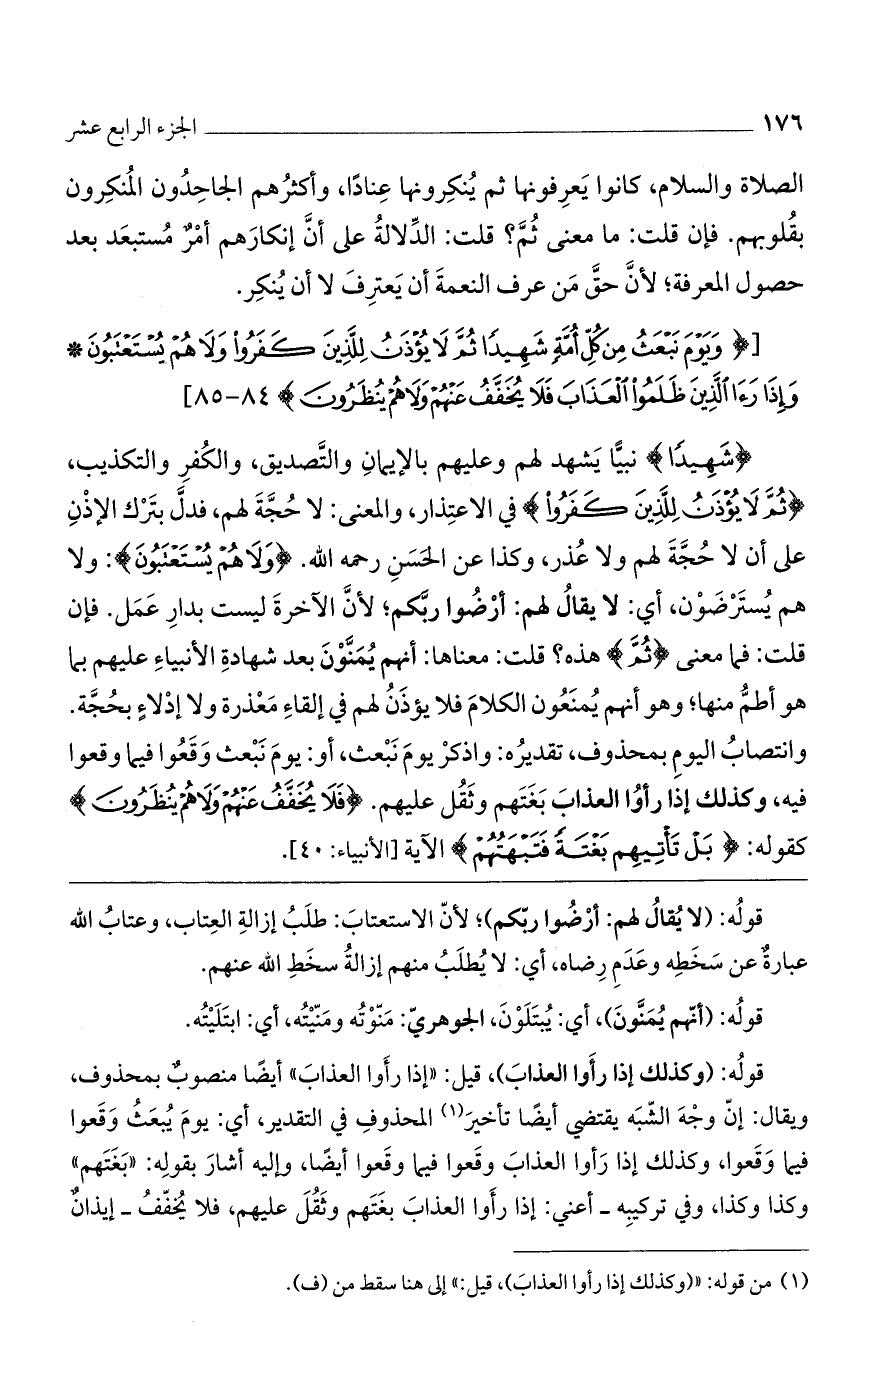 ١٧٦ الجزء الرابع عشر
الصلاة والسلام، كانوا يَعرِفونها ثم يُنكِرونها عِنادًا، وأكثرُهم الجاحِدُون المُنكِرون
بقُلوبهم. فإن قلت: ما معنى ثُمَّ؟ قلت: الدِّلالةُ على أنَّ إنكارَهم أمْرٌ مُستبعَد بعد
حصول المعرفة؛ لأنَّ حقَّ مَن عرف النعمةَ أن يَعترِفَ لا أن يُنكِر.
[﴿ وَيَوْمَ نَبْعَثُ مِن كُلِّ أُمَّةٍ شَهِيدًا ثُمَّ لَا يُؤْذَنُ لِلَّذِينَ كَفَرُوا۟ وَلَا هُمْ يُسْتَعْتَبُونَ *
وَإِذَا رَءَا ٱلَّذِينَ ظَلَمُوا۟ ٱلْعَذَابَ فَلَا يُخَفَّفُ عَنْهُمْ وَلَا هُمْ يُنظَرُونَ ﴾ ٨٤–٨٥]
﴿شَهِيدًا﴾ نبيًّا يَشهد لهم وعليهم بالإيمانِ والتَّصديق، والكُفرِ والتكذيب،
﴿ثُمَّ لَا يُؤْذَنُ لِلَّذِينَ كَفَرُوا۟ ﴾ في الاعتِذار، والمعنى: لا حُجَّةَ لهم، فدلَّ بتَرْك الإذْنِ
على أن لا حُجَّةَ لهم ولا عُذر، وكذا عن الحَسَنِ رحمه الله. ﴿وَلَا هُمْ يُسْتَعْتَبُونَ﴾: ولا
هم يُستَرْضَوْن، أي: لا يقالُ لهم: أرْضُوا ربَّكم؛ لأنَّ الآخرةَ ليست بدارِ عَمَل. فإن
قلت: فما معنى ﴿ثُمَّ ﴾ هذه؟ قلت: معناها: أنهم يُمَنَّوْنَ بعد شهادةِ الأنبياءِ عليهم بما
هو أطمُّ منها؛ وهو أنهم يُمنَعُون الكلامَ فلا يؤذَنُ لهم في إلقاءِ مَعْذرة ولا إدْلاءٍ بحُجَّة.
وانتصابُ اليومِ بمحذوف، تقديرُه: واذكرْ يومَ نَبْعث، أو: يومَ نَبْعث وَقَعُوا فيما وقعوا
فيه، وكذلك إذا رأوُا العذابَ بَغَتَهم وثَقُل عليهم. ﴿فَلَا يُخَفَّفُ عَنْهُمْ وَلَا هُمْ يُنظَرُونَ ﴾
كقوله: ﴿ بَلْ تَأْتِيهِم بَغْتَةً فَتَبْهَتُهُمْ ﴾ الآية [الأنبياء: ٤٠].
قولُه: (لا يُقالُ لهم: أرْضُوا ربّكم)؛ لأنّ الاستعتابَ: طلَبُ إزالةِ العِتاب، وعتابُ الله
عبارةٌ عن سَخَطِه وعَدَمِ رِضاه، أي: لا يُطلَبُ منهم إزالةُ سخَطِ الله عنهم.
قولُه: (أنّهم يُمَنَّونَ)، أي: يُبتَلَوْنَ، الجوهريّ: مَنّوْتُه ومَنّيْتُه، أي: ابتَلَيْتُه.
قولُه: (وكذلك إذا رأَوا العذابَ)، قيل: «إذا رأَوا العذابَ» أيضًا منصوبٌ بمحذوف،
ويقال: إنّ وجْهَ الشّبَه يقتضي أيضًا تأخيرَ(١) المحذوفِ في التقدير، أي: يومَ يُبعَثُ وَقَعوا
فيما وَقَعوا، وكذلك إذا رَأوا العذابَ وقَعوا فيما وقَعوا أيضًا، وإليه أشارَ بقولِه: «بَغَتَهم»
وكذا وكذا، وفي تركيبِه - أعني: إذا رأَوا العذابَ بغَتَهم وثَقُلَ عليهم، فلا يُخفّفُ - إيذانٌ
(١) من قوله: «(وكذلك إذا رأوا العذابَ)، قيل:» إلى هنا سقط من (ف).